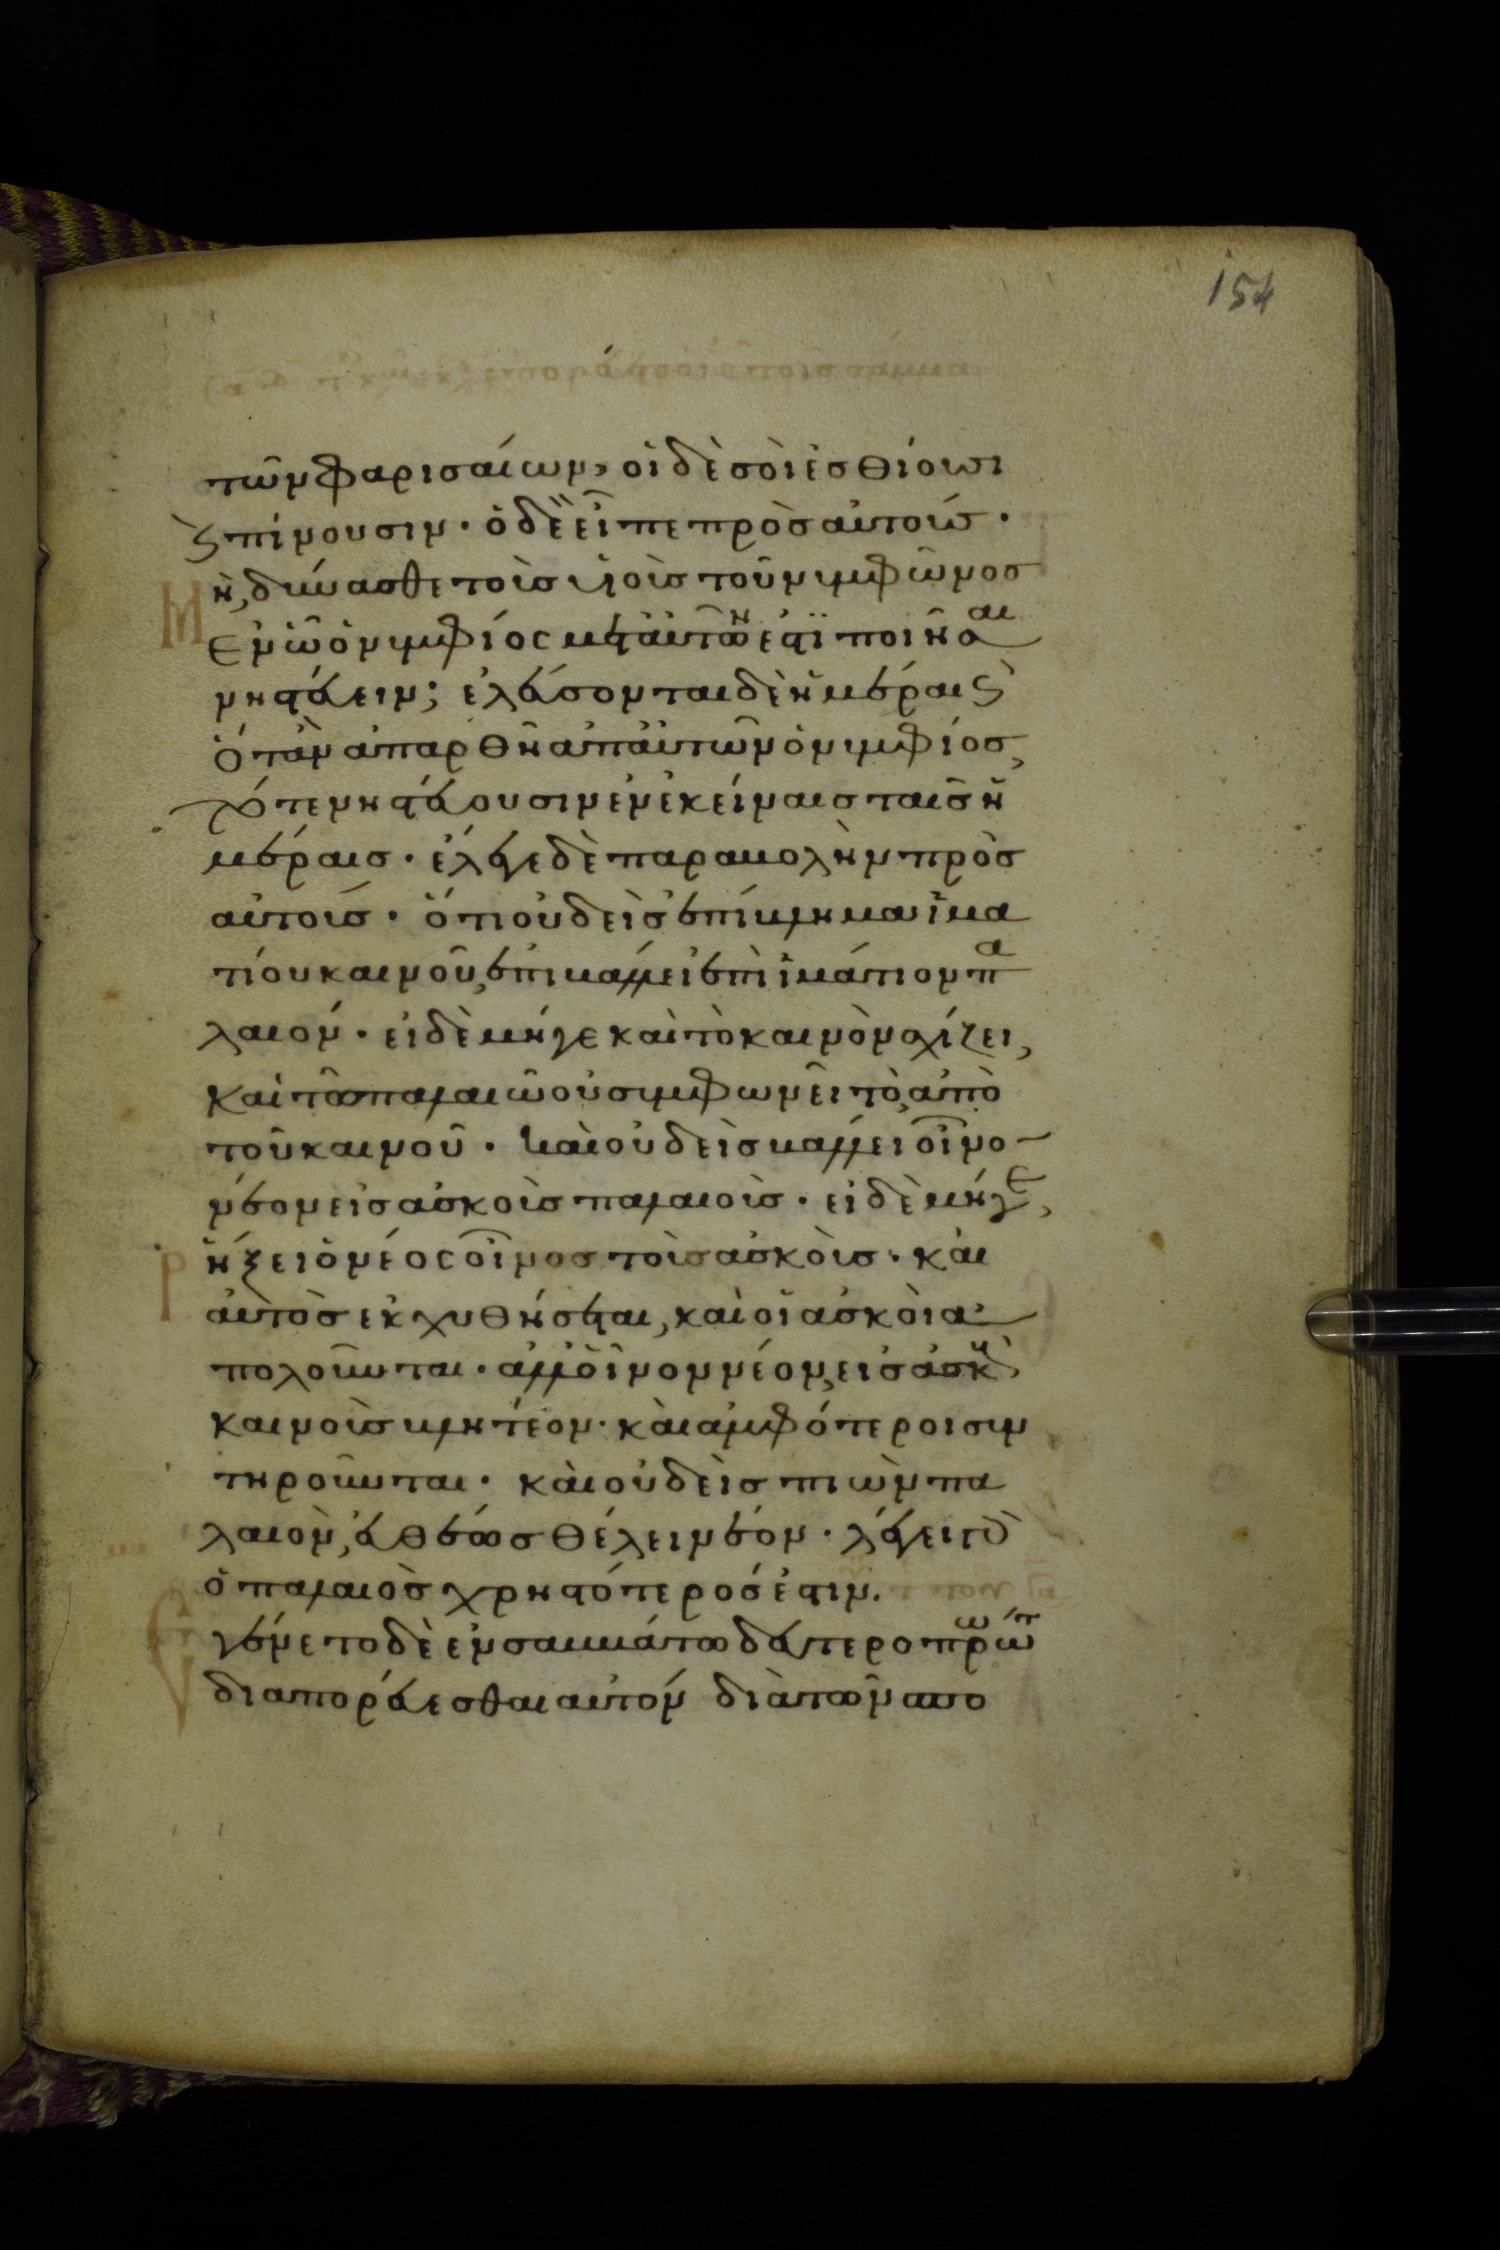 154
τῶν φαρισαίων, οἱ δὲ σοὶ ἐσθίουσι
ϗ πίνουσιν· ὁ δὲ εἶπε πρὸς αὐτούς·
Μὴ, δύνασθε τοὺς υἱοὺς τοῦ νυμφῶνος
ἐν ᾧ ὁ νυμφίος μετ' αὐτῶν ἐστι ποιῆσαι
νηστεύειν; ἐλεύσονται δὲ ἡμέραι ϗ
ὅταν ἀπαρθῆ ἀπ' αὐτῶν ὁ νυμφίος,
τότε νηστεύουσιν ἐν ἐκείναις ταῖς ἡ
μέραις· ἔλεγε δὲ παραβολὴν πρὸς
αὐτούς· ὅτι οὐδεὶς ἐπίβλημα ἱμα
τίου καινοῦ, ἐπιβάλλει ἐπὶ ἱμάτιον πα
λαιόν· εἰ δὲ μήγε καὶ τὸ καινὸν σχίζει,
καὶ τῶ παλαιῶ οὐ συμφωνεῖ τὸ, ἀπὸ
τοῦ καινοῦ· καὶ οὐδεὶς βάλλει οἶνο
νέον εἰς ἀσκοὺς παλαιούς· εἰ δὲ μήγε,
Ρήξει ὁ νέος οἶνος τοὺς ἀσκούς· καὶ
αὐτὸς ἐκχυθήσεται, καὶ οἱ ἀσκοὶ α
πολοῦνται· ἀλλ' οἶνον νέον, εἰς ἀσκοὺς
καινοὺς βλητέον· καὶ ἀμφότεροι συν
τηροῦνται· καὶ οὐδεὶς πιὼν πα
λαιὸν, εὐθέως θέλει νέον· λέγει γὰρ
ὁ παλαιὸς χρηστότερός ἐστιν.
Ἐγένετο δὲ ἐν σαββάτω δευτεροπρώτω
διαπορεύεσθαι αὐτόν διὰ τῶν σπο